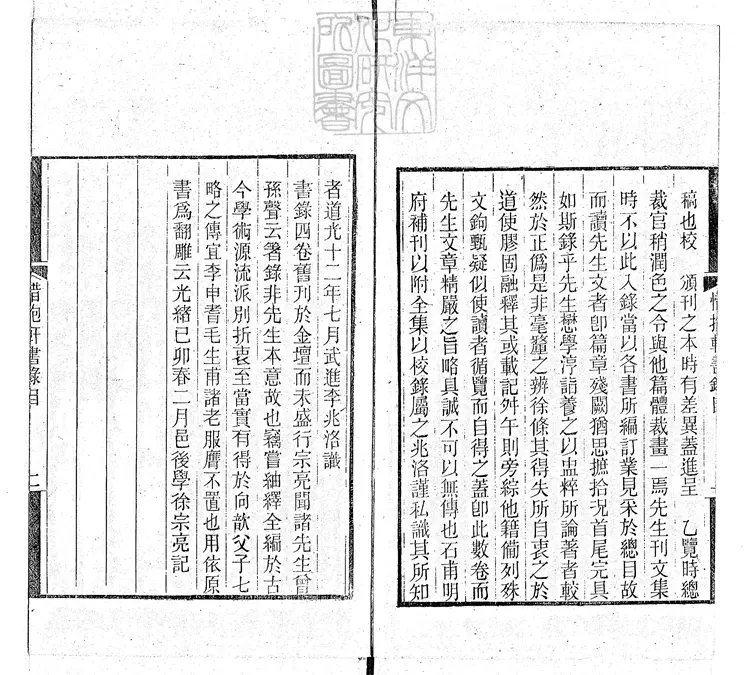 東洋文
化研究
所圖書
稿也校　頒刊之本時有差異蓋進呈　乙覽時總
裁官稍潤色之令與他篇體裁畫一焉先生刊文集
時不以此入錄當以各書所編訂業見采於總目故
而讀先生文者卽篇章殘闕猶思摭拾况首尾完具
如斯錄乎先生懋學淳詣養之以盅粹所論著者較
然於正僞是非毫釐之辨徐條其得失所自衷之於
道使膠固融釋其或載記舛午則旁綜他籍僃列殊
文鉤甄疑似使讀者循覽而自得之蓋卽此數卷而
先生文章精嚴之旨略具誠不可以無傳也石甫明
府補刊以附全集以校錄屬之兆洛謹私識其所知
惜抱軒書錄目
者道光十二年七月武進李兆洛識
書錄四卷舊刊於金壇而未盛行宗亮聞諸先生曾
孫聲云署錄非先生本意故也竊嘗紬釋全編於古
今學術源流派別折衷至當實有得於向歆父子七
略之傳宜李申耆毛生甫諸老服膺不置也用依原
書爲翻雕云光緒己卯春二月邑後學徐宗亮記